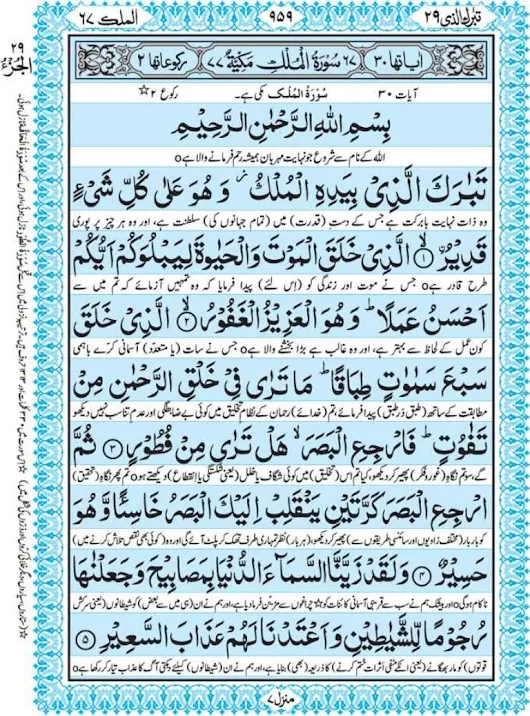 تبٰرك الذی ٢٩
٩٥٩
الملك ٦٧
اٰیاتها ٣٠
٦٧ سُوْرَةُ الْمُلْكِ مَكِّيَّةٌ ٧٧
رکوعاتها ٢
آیات ٣٠
سُوْرَۃُ الْمُلْک مکی ہے۔
رکوع ٢
بِسْمِ اللهِ الرَّحْمٰنِ الرَّحِيْمِ
اللہ کے نام سے شروع جو نہایت مہربان ہمیشہ رحم فرمانے والا ہے o
تَبٰرَكَ الَّذِيْ بِيَدِهِ الْمُلْكُ ز وَ هُوَ عَلٰى كُلِّ شَيْءٍ
وہ ذات نہایت بابرکت ہے جس کے دستِ (قدرت) میں (تمام جہانوں کی) سلطنت ہے، اور وہ ہر چیز پر پوری
قَدِيْرُۨ ۙ﴿١﴾ الَّذِيْ خَلَقَ الْمَوْتَ وَالْحَيٰوةَ لِيَبْلُوَكُمْ اَيُّكُمْ
طرح قادر ہے o جس نے موت اور زندگی کو (اِس لئے) پیدا فرمایا کہ وہ تمہیں آزمائے کہ تم میں سے
اَحْسَنُ عَمَلًا ؕ وَ هُوَ الْعَزِيْزُ الْغَفُوْرُ ۙ﴿٢﴾ الَّذِيْ خَلَقَ
کون عمل کے لحاظ سے بہتر ہے، اور وہ غالب ہے بڑا بخشنے والا ہے o جس نے سات (یا متعدّد) آسمانی کرّے باہمی
سَبْعَ سَمٰوٰتٍ طِبَاقًا ؕ مَا تَرٰى فِيْ خَلْقِ الرَّحْمٰنِ مِنْ
مطابقت کے ساتھ (طبق دَر طبق) پیدا فرمائے، تم (خدائے) رحمان کے نظامِ تخلیق میں کوئی بے ضابطگی اور عدمِ تناسب نہیں دیکھو
تَفٰوُتٍ ؕ فَارْجِعِ الْبَصَرَ ۙ هَلْ تَرٰى مِنْ فُطُوْرٍ ﴿٣﴾ ثُمَّ
گے، سو تم نگاہِ (غور و فکر) پھیر کر دیکھو، کیا تم اس (تخلیق) میں کوئی شگاف یا خلل (یعنی شکستگی یا اِنقطاع) دیکھتے ہو o تم پھر نگاہِ (تحقیق)
ارْجِعِ الْبَصَرَ كَرَّتَيْنِ يَنْقَلِبْ اِلَيْكَ الْبَصَرُ خَاسِئًا وَّ هُوَ
کو بار بار (مختلف زاویوں اور سائنسی طریقوں سے) پھیر کر دیکھو، (ہر بار) نظر تمہاری طرف تھک کر پلٹ آئے گی اور وہ (کوئی بھی نقص تلاش کرنے میں)
حَسِيْرٌ ﴿٤﴾ وَ لَقَدْ زَيَّنَّا السَّمَآءَ الدُّنْيَا بِمَصَابِيْحَ وَ جَعَلْنٰهَا
ناکام ہو گی o اور بیشک ہم نے سب سے قریبی آسمانی کائنات کو چراغوں سے مزیّن فرما دیا ہے، اور ہم نے ان (ہی میں سے بعض) کو شیطانوں (یعنی سرکش
رُجُوْمًا لِّلشَّيٰطِيْنِ وَ اَعْتَدْنَا لَهُمْ عَذَابَ السَّعِيْرِ ﴿٥﴾
قوتوں) کو مار بھگانے (یعنی انکے منفی اثرات ختم کرنے) کا ذریعہ (بھی) بنایا ہے، اور ہم نے ان (شیطانوں) کیلئے دہکتی آگ کا عذاب تیار کر رکھا ہے o
منزل ٧
٢٩
الجزء